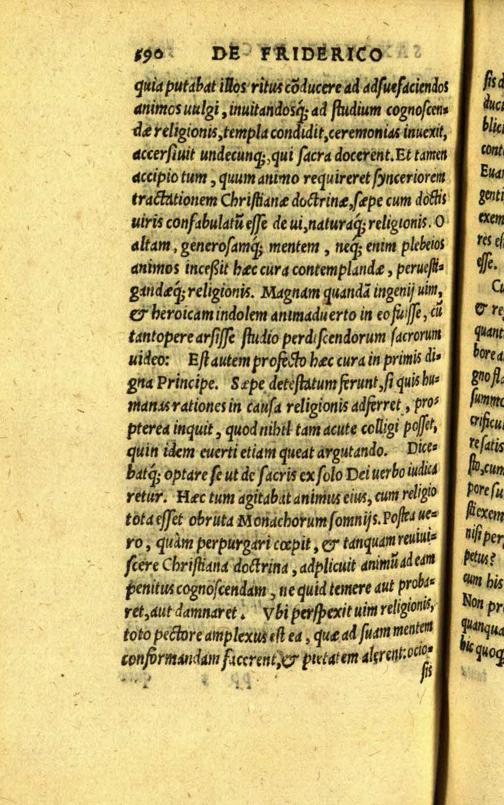 590 DE FRIDERICO
quia putabat illos ritus cõducere ad adsuefaciendos
animos uulgi, inuitandosq́; ad studium cognoscen-
dæ religionis, templa condidit, ceremonias inuexit,
accersiuit undecunq;, qui sacra docerent. Et tamen
accipio tum, quum animo requireret synceriorem
tractationem Christianæ doctrinæ, sæpe cum doctis
uiris confabulatũ esse de ui, naturaq́; religionis. O
altam, generosamq́; mentem, neq; enim plebeios
animos inceßit hæc cura contemplandæ, peruesti-
gandæq́; religionis. Magnam quandã ingenij uim,
& heroicam indolem animaduerto in eo fuisse, cũ
tantopere arsisse studio perdiscendorum sacrorum
uideo: Est autem profecto hæc cura in primis di-
gna Principe. Sæpe detestatum ferunt, si quis hu-
manas rationes in causa religionis adferret, pro-
pterea inquit, quod nihil tam acute colligi posset,
quin idem euerti etiam queat argutando. Dice-
batq́; optare se ut de sacris ex solo Dei uerbo iudica
retur. Hæc tum agitabat animus eius, cum religio
tota esset obruta Monachorum somnijs. Postea ue-
ro, quàm perpurgari cœpit, & tanquam reuiui-
scere Christiana doctrina, adplicuit animũ ad eam
penitus cognoscendam, ne quid temere aut proba-
ret, aut damnaret. Vbi perspexit uim religionis,
toto pectore amplexus est ea, quæ ad suam mentem
conformandam facerent, & pietatem alerent: ocio-
sis